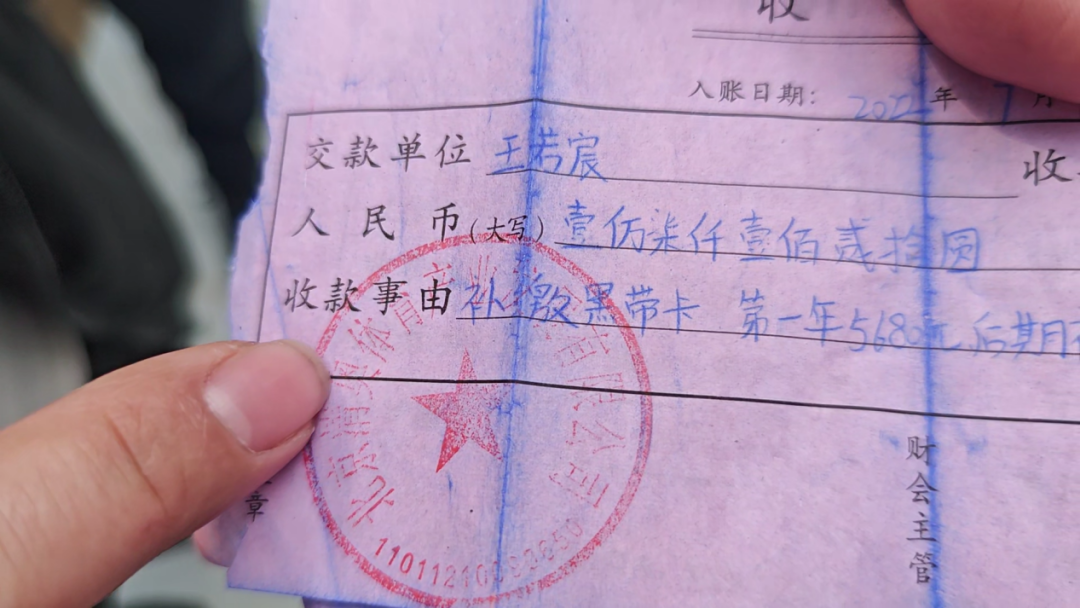 收
入账日期： 2022年 7月
交款单位 王若宸 收
人民币(大写) 壹仿柒仟壹佰贰拾圆
收款事由 补缴黑带卡 第一年5680元 后期
章
财会主管
北京 体育产业 有限公司